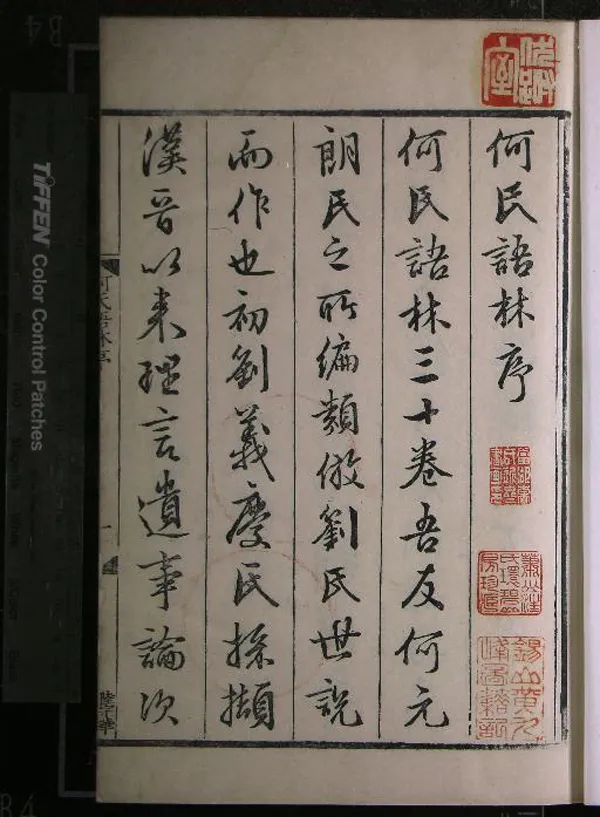 何氏語林序
何氏語林三十卷吾友何元
朗氏之所編類倣劉氏世說
而作也初劉義慶氏採擷
漢晉以來理言遺事論次
何氏語林序
一
TIFFEN Color Control Patches
B4
B4